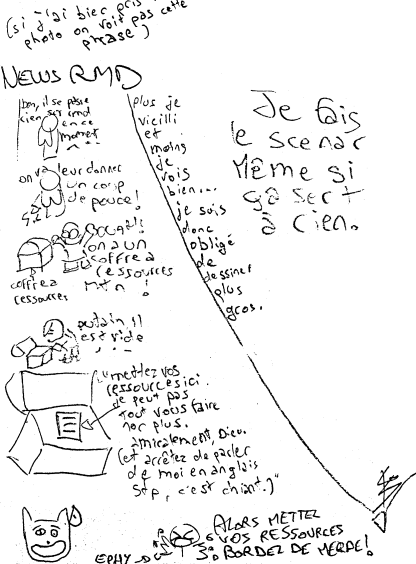 (si j'ai bien pris la
photo on voit pas cette
phrase)
NEWS RMD
bon, il se passe
rien sur rmd
en ce
moment
on va leur donner
un coup
de pouce!
on a un
coffre à
ressources
mtn !
coffre à
ressources
putain, il
est vide
"mettez vos
ressources ici.
je peut pas
tout vous faire
non plus.
amicalement, Dieu.
(et arrêtez de parler
de moi en anglais
stp, c'est chiant.)"
plus je
vieilli
et
moins
je
vois
bien...
je suis
donc
obligé
de
dessiner
plus
gros.
Je fais
le scenar
même si
ça sert
à rien.
EPHY
ALORS METTEZ
VOS RESSOURCES
BORDEZ DE MERDE!